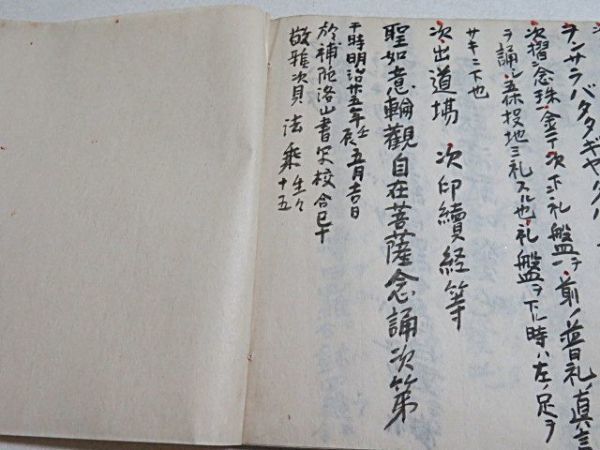 ヲンサラバタタギヤタ
次摺念珠一金二丁次下礼盤ヲ前ノ普礼ノ真言
ヲ誦シ五体投地三礼スル也礼盤ヲ下ル時ハ左ノ足ヲ
サキニ下也
次出道場 次印續経等
聖如意輪觀自在菩薩念誦次第
干時明治廿五年壬辰五月吉日
於補陀洛山書写校合已干
敬雅次貝 法乘 生々十五